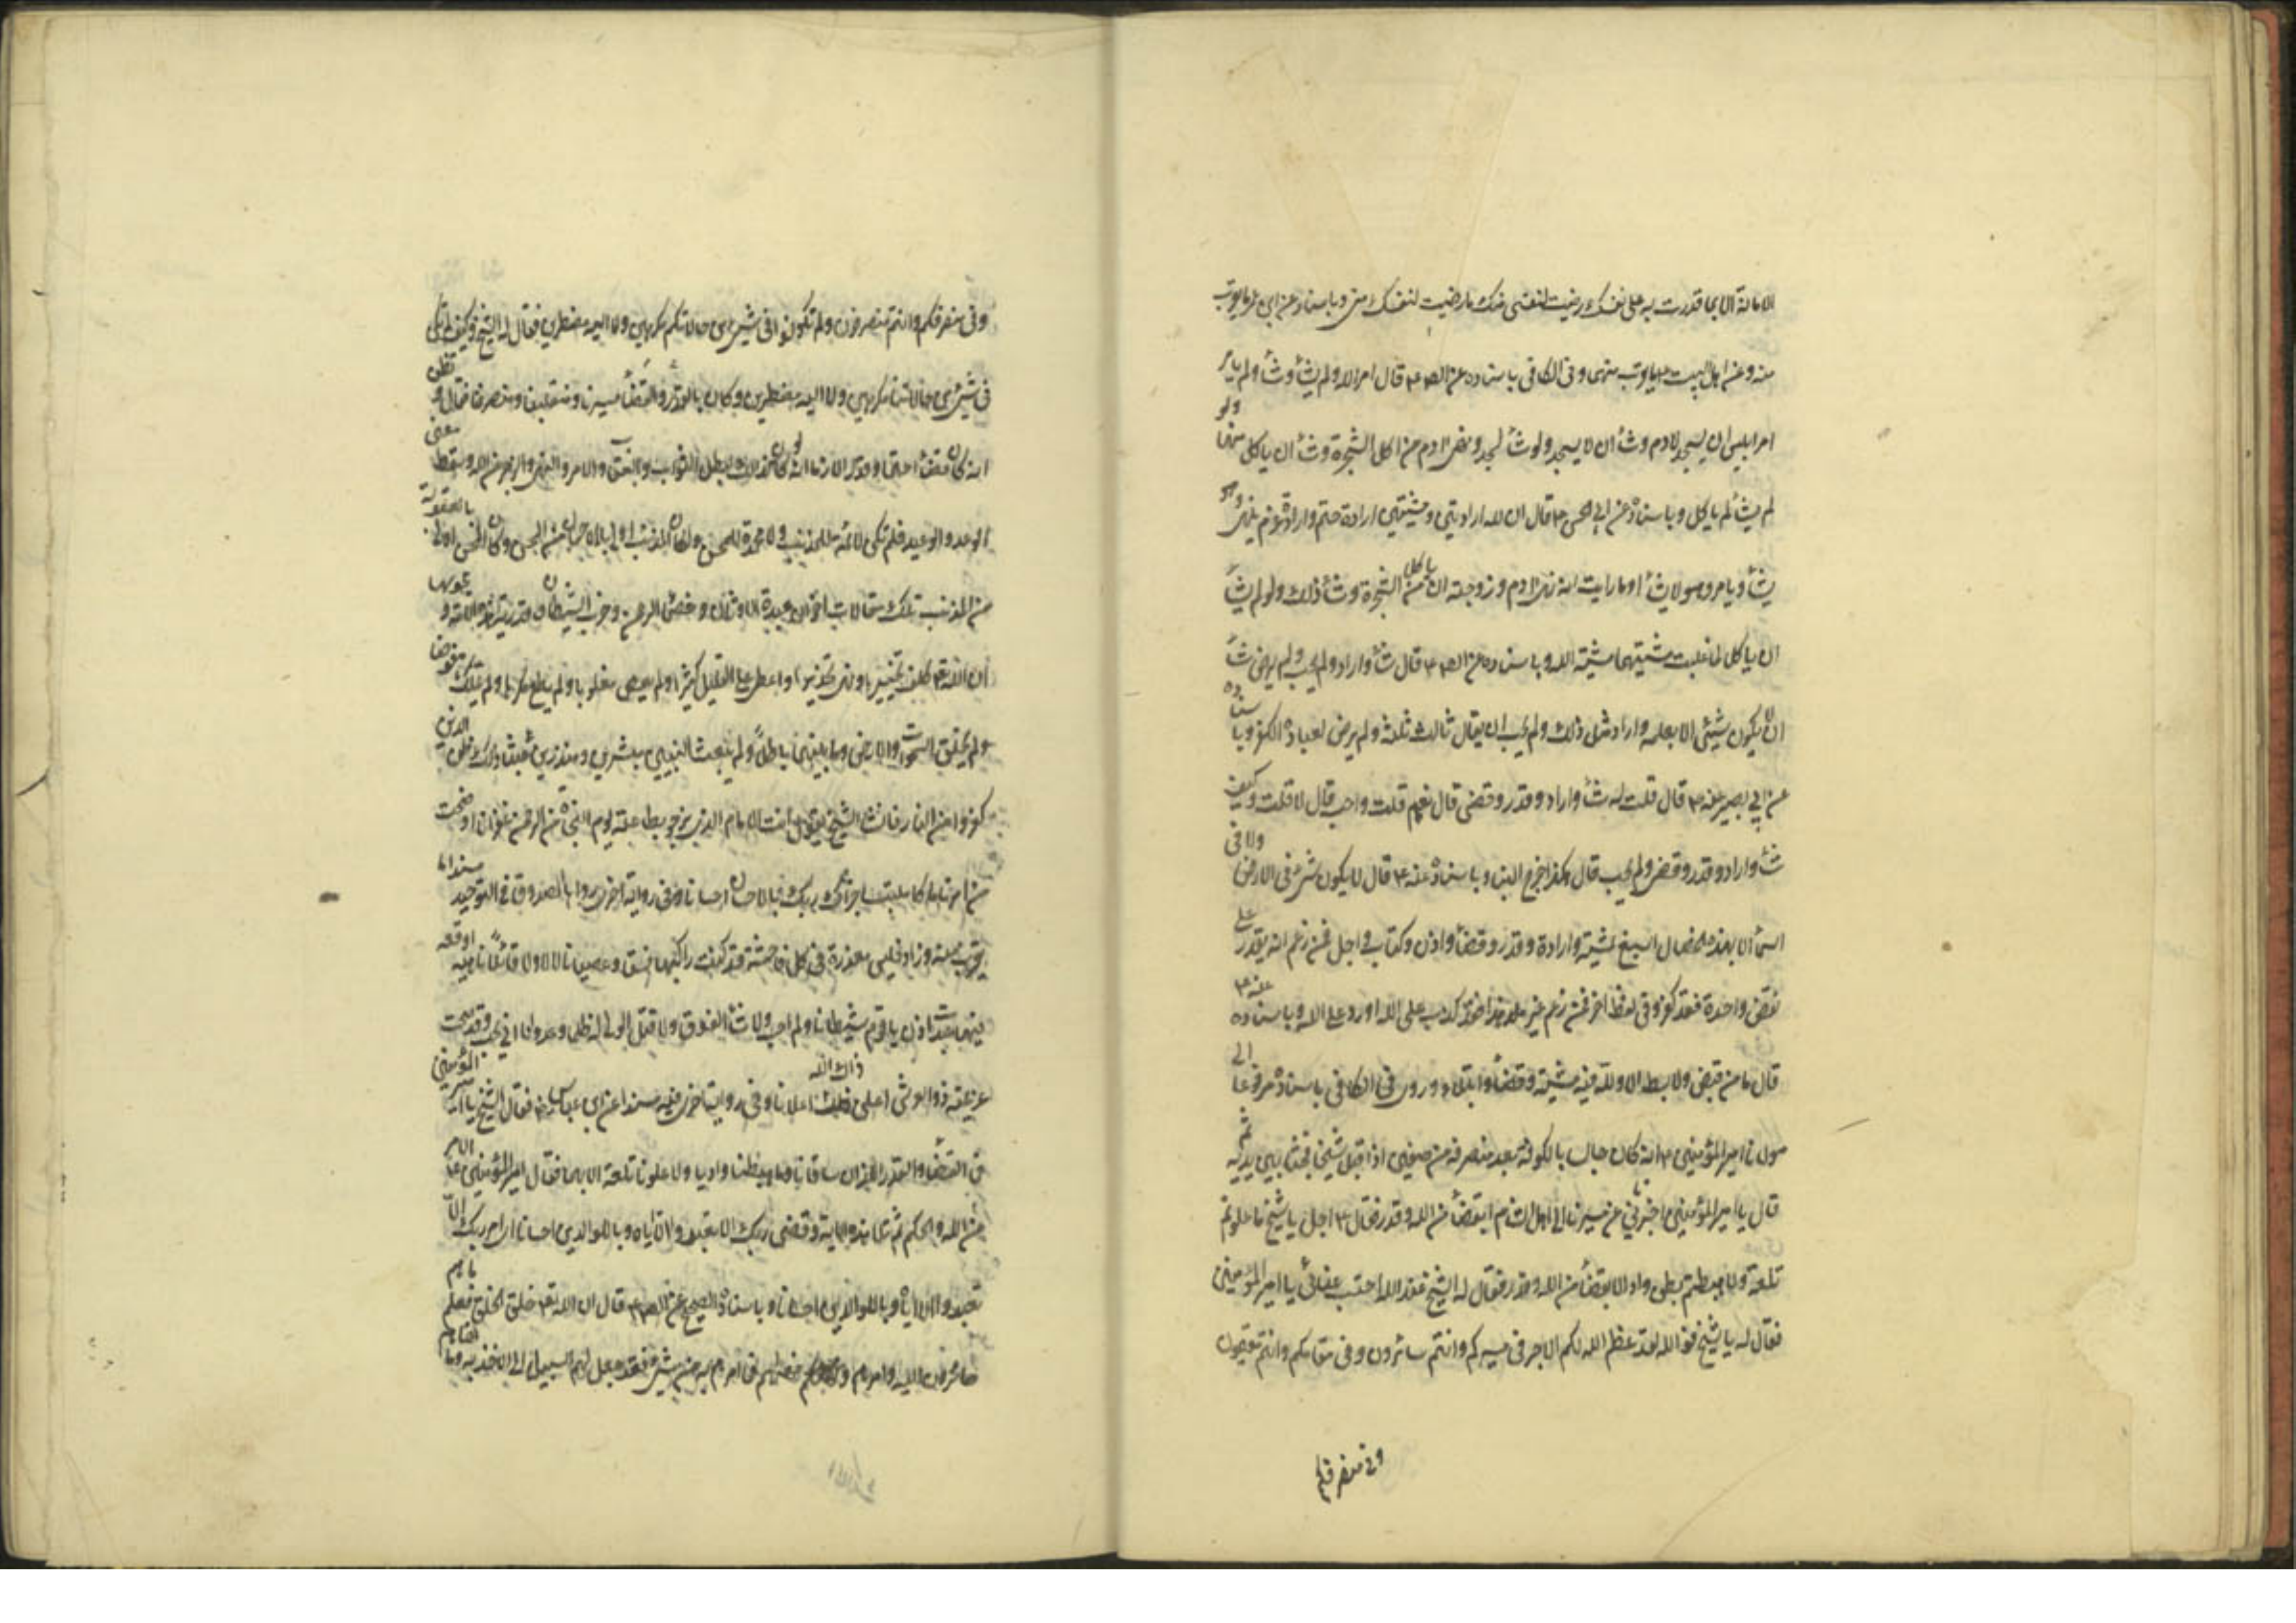 الامانة الا بما قدرت به على نفسك رضيت لنفسى منك ما رضيت لنفسك منى وباسناده عن ابى
منه وعن اهل البيت ما يقرب منهما وفى الكافى باسناده عن الص ع قال امر الله ولم يشأ وشأ ولم يأمر
امر ابليس ان يسجد لادم وشأ ان لا يسجد ولو شأ لسجد ونهى ادم عن اكل الشجرة وشأ ان ياكل منها ولو
لم يشأ لم ياكل وباسناده عن ابى الحسن ع قال ان لله ارادتين ومشيتين ارادة حتم وارادة عزم ينهى وهو
يشأ ويامر وهو لا يشأ اوما رايت انه نهى ادم وزوجته ان ياكلا من الشجرة وشأ ذلك ولو لم يشأ
ان ياكلا لما غلبت مشيتهما مشية الله وباسناده عن الص ع قال شأ واراد ولم يحب ولم يرض شأ
ان لا يكون شيئ الا بعلمه واراد مثل ذلك ولم يحب ان يقال ثالث ثلثة ولم يرض لعباده الكفر وباسناده
عن ابى بصير عنه ع قال قلت له شأ واراد وقدر وقضى قال نعم قلت واحب قال لا قلت وكيف
شأ واراد وقدر وقضى ولم يحب قال هكذا خرج الينا وباسناده عنه ع قال لا يكون شئ فى الارض ولا فى
السمأ الا بهذه الخصال السبع بمشية وارادة وقدر وقضأ واذن وكتاب واجل فمن زعم انه يقدر على
نقض واحدة فقد كفر وفى لفظ اخر فمن زعم غير هذا فقد كذب على الله او رد على الله وباسناده عنه ع
قال ما من قبض ولا بسط الا ولله فيه مشية وقضأ وابتلاء وروى فى الكافى باسناده مرفوعا الى
مولانا امير المؤمنين ع انه كان جالسا بالكوفة بعد منصرفه من صفين اذ اقبل شيخ فجثا بين يديه ثم
قال يا امير المؤمنين اخبرنى عن مسيرنا الى اهل الشام ابقضأ من الله وقدر فقال ع اجل يا شيخ ما علوتم
تلعة ولا هبطتم بطن واد الا بقضأ من الله وقدر فقال له الشيخ عند الله احتسب عنائى يا امير المؤمنين
فقال له يا شيخ فوالله لقد عظم الله لكم الاجر فى مسيركم وانتم سائرون وفى مقامكم وانتم مقيمون
وفى منصرفكم
وفى منصرفكم وانتم منصرفون ولم تكونوا فى شيئ من حالاتكم مكرهين ولا اليه مضطرين فقال له الشيخ وكيف لم نكن
فى شيئ من حالاتنا مكرهين ولا اليه مضطرين وكان بالقدر والقضأ مسيرنا ومنقلبنا ومنصرفنا فقال وتظن
انه كان قضأ حتما وقدرا لازما انه لو كان كذلك لبطل الثواب والعقاب والامر والنهى والزجر من الله وسقط معنى
الوعد والوعيد فلم تكن لائمة للمذنب ولا محمدة للمحسن ولكان المذنب اولى بالاحسان من المحسن ولكان المحسن اولى بالعقوبة
من المذنب تلك مقالات اخوان عبدة الاوثان وخصمأ الرحمن وحزب الشيطان وقدرية هذه الامة ومجوسها
ان الله تع كلف تخييرا ونهى تحذيرا واعطى على القليل كثيرا ولم يعص مغلوبا ولم يطع مكرها ولم يملك مفوضا
ولم يخلق السموات والارض وما بينهما باطلا ولم يبعث النبيين مبشرين ومنذرين عبثا ذلك ظن الذين
كفروا من النار فانشأ الشيخ يقول انت الامام الذى نرجو بطاعته يوم النجاة من الرحمن غفرانا اوضحت
من امرنا ما كان ملتبسا جزاك ربك بالاحسان احسانا وفى رواية اخرى رواها الصدوق فى التوحيد مسندا ما
يقرب منه وزاد فليس معذرة فى كل فاحشة قد كنت راكبها فسقا وعصيانا لا لا ولا قائلا ناهيه اوقعه
فيها عبدت اذن يا قوم شيطانا ولم احب ولا شأ الفسوق ولا قتل الولى له ظلما وعدوانا انى يحب وقد صحت
عزيمته ذو العرش اعلن ذاك الله اعلانا وفى رواية اخرى فيه مسندا عن ابن عباس فقال الشيخ يا امير المؤمنين
فما القضأ والقدر اللذان ساقانا وما هبطنا واديا ولا علونا تلعة الا بهما فقال امير المؤمنين ع الامر
من الله والحكم ثم تلا هذه الاية وقضى ربك الا تعبدوا الا اياه وبالوالدين احسانا اى امر ربك الا
تعبدوا الا اياه وبالوالدين احسانا وباسناده الصحيح عن الص ع قال ان الله تع خلق الخلق فعلم ما هم
صائرون اليه وامرهم ونهاهم فما امرهم به من شئ فقد جعل لهم السبيل الى الاخذ به وما نهاهم